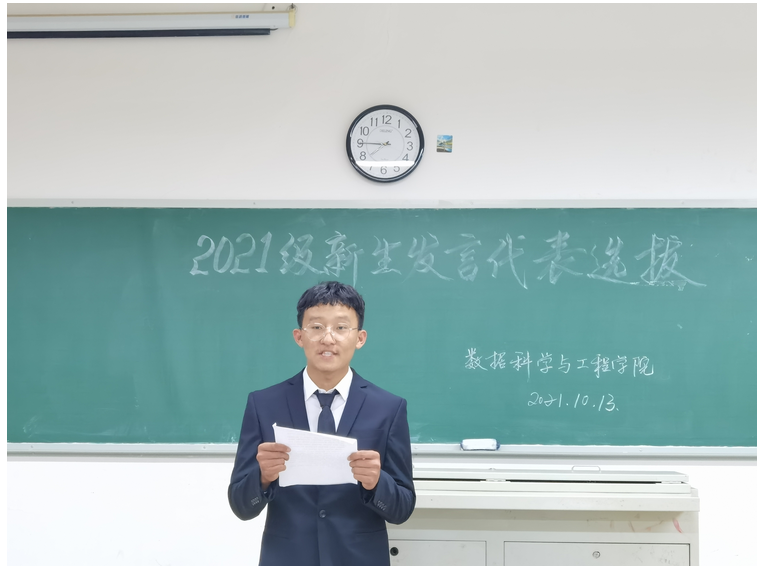 12
1
2
3
4
5
6
8
9
10
11
2021级新生发言代表选拔
数据科学与工程学院
2021.10.13.